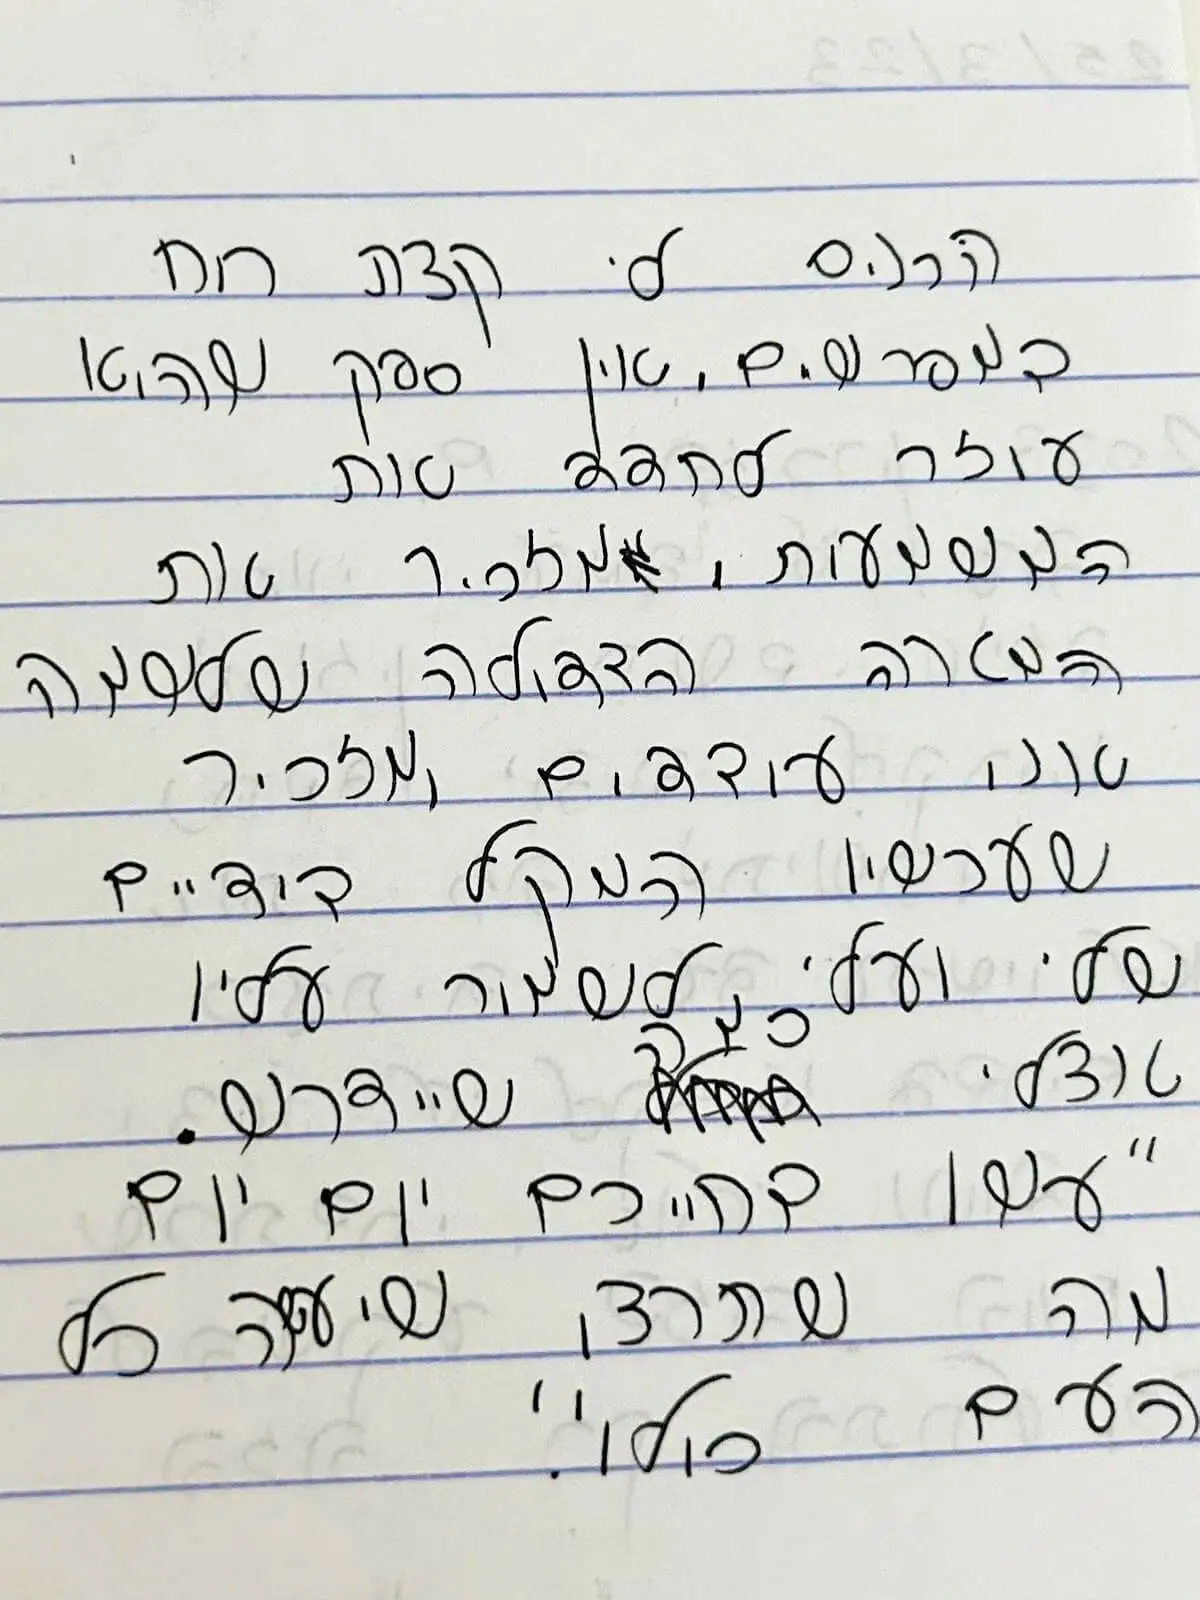 הכניס לי קצת רוח
במפרשים, אין ספק שהוא
עוזר לחדד את
המשמעות, מזכיר את
המטרה הגדולה שלשמה
אנו עובדים ומזכיר
שעכשיו המקל בידיים
שלי ועליי לשמור עליו
אצלי כמה שיידרש.
"עשו בחייכם יום יום
מה שתרצו שיעשה כל
העם כולו".